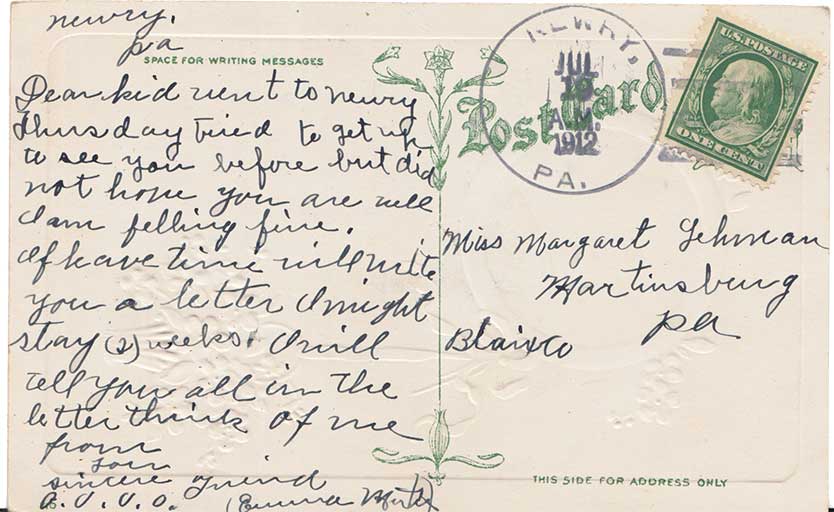 newry.
pa
SPACE FOR WRITING MESSAGES
Dear kid went to newry
thursday tried to get up
to see you before but did
not hope you are well
I am felling fine.
If have time will write
you a letter I might
stay (2) weeks. I will
tell you all in the
letter think of me
from
your
sincere friend
(Emma
Post Card.
NEWRY,
JUL
A.M.
1912
PA.
U.S. POSTAGE
ONE CENT
Miss Margaret Lehman
Martinsburg
pa
Blair Co
THIS SIDE FOR ADDRESS ONLY